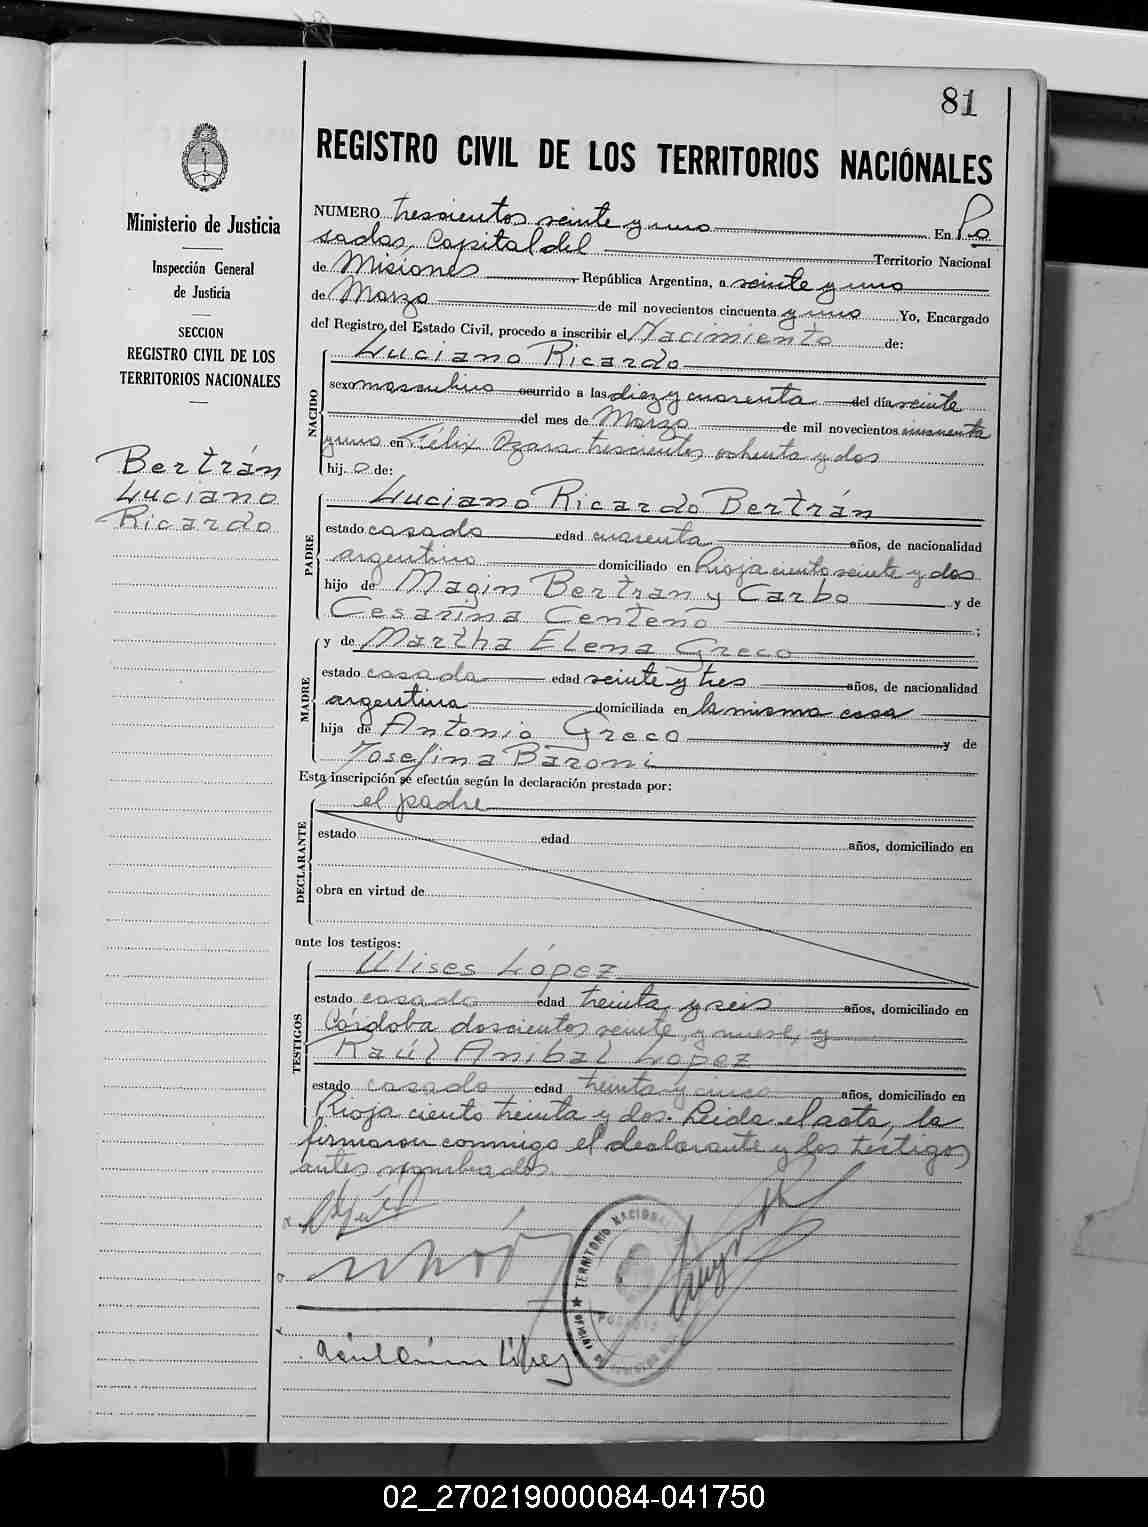 81
REGISTRO CIVIL DE LOS TERRITORIOS NACIÓNALES
Ministerio de Justicia
Inspección General
de Justicia
SECCION
REGISTRO CIVIL DE LOS
TERRITORIOS NACIONALES
Bertrán
Luciano
Ricardo
NUMERO trescientos veinte y uno En Po
sadas, Capital del Territorio Nacional
de Misiones, República Argentina, a veinte y uno
de Marzo de mil novecientos cincuenta y uno Yo, Encargado
del Registro del Estado Civil, procedo a inscribir el Nacimiento de:
Luciano Ricardo
NACIDO
sexo masculino ocurrido a las diez y cuarenta del día veinte
del mes de Marzo de mil novecientos cincuenta
y uno en Félix Azara trescientos ochenta y dos
hij o de:
PADRE
Luciano Ricardo Bertrán
estado casado edad cuarenta años, de nacionalidad
argentino domiciliado en Rioja ciento veinte y dos
hijo de Magin Bertran y Carbo y de
Cesarina Centeno ;
MADRE
y de Martha Elena Greco
estado casada edad veinte y tres años, de nacionalidad
argentina domiciliada en la misma casa
hija de Antonio Greco y de
Josefina Baroni
Esta inscripción se efectúa según la declaración prestada por:
el padre
DECLARANTE
estado edad años, domiciliado en
obra en virtud de
ante los testigos:
TESTIGOS
Ulises López
estado casado edad treinta y seis años, domiciliado en
Córdoba doscientos veinte y nueve, y
Raúl Anibal Lopez
estado casado edad treinta y cinco años, domiciliado en
Rioja ciento treinta y dos. Leida el acta, la
firmaron conmigo el declarante y los testigos
antes nombrados.
TERRITORIO NACIONAL
POSADAS
02_270219000084-041750